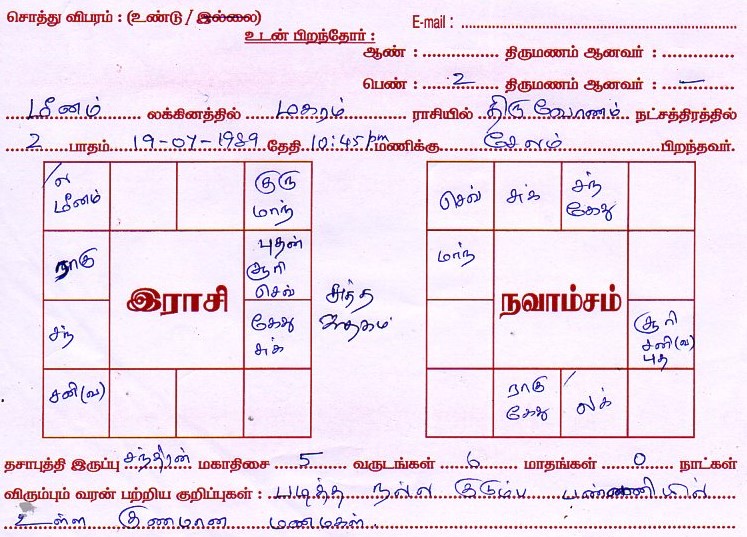 சொத்து விபரம் : (உண்டு / இல்லை)
E-mail :
உடன் பிறந்தோர் :
ஆண் : .............. திருமணம் ஆனவர் : ..............
பெண் : 2 திருமணம் ஆனவர் : –
மீனம் லக்கினத்தில் மகரம் ராசியில் திருவோணம் நட்சத்திரத்தில்
2 பாதம் 19-07-1989 தேதி 10:45 pm மணிக்கு சேலம் பிறந்தவர்.
ல மீனம்
குரு மாந்
ராகு
புதன் சூரி செவ்
இராசி
சந்
கேது சுக்
சனி(வ)
சுத்த ஜாதகம்
செவ்
சுக்
சந் கேது
மாந்
நவாம்சம்
சூரி சனி(வ) புத
ராகு கேது
லக்
தசாபுத்தி இருப்பு சந்திரன் மகாதிசை 5 வருடங்கள் 6 மாதங்கள் 0 நாட்கள்
விரும்பும் வரன் பற்றிய குறிப்புகள் : படித்த நல்ல குடும்ப பண்ணணியில்
உள்ள குணமான மணமகள்.